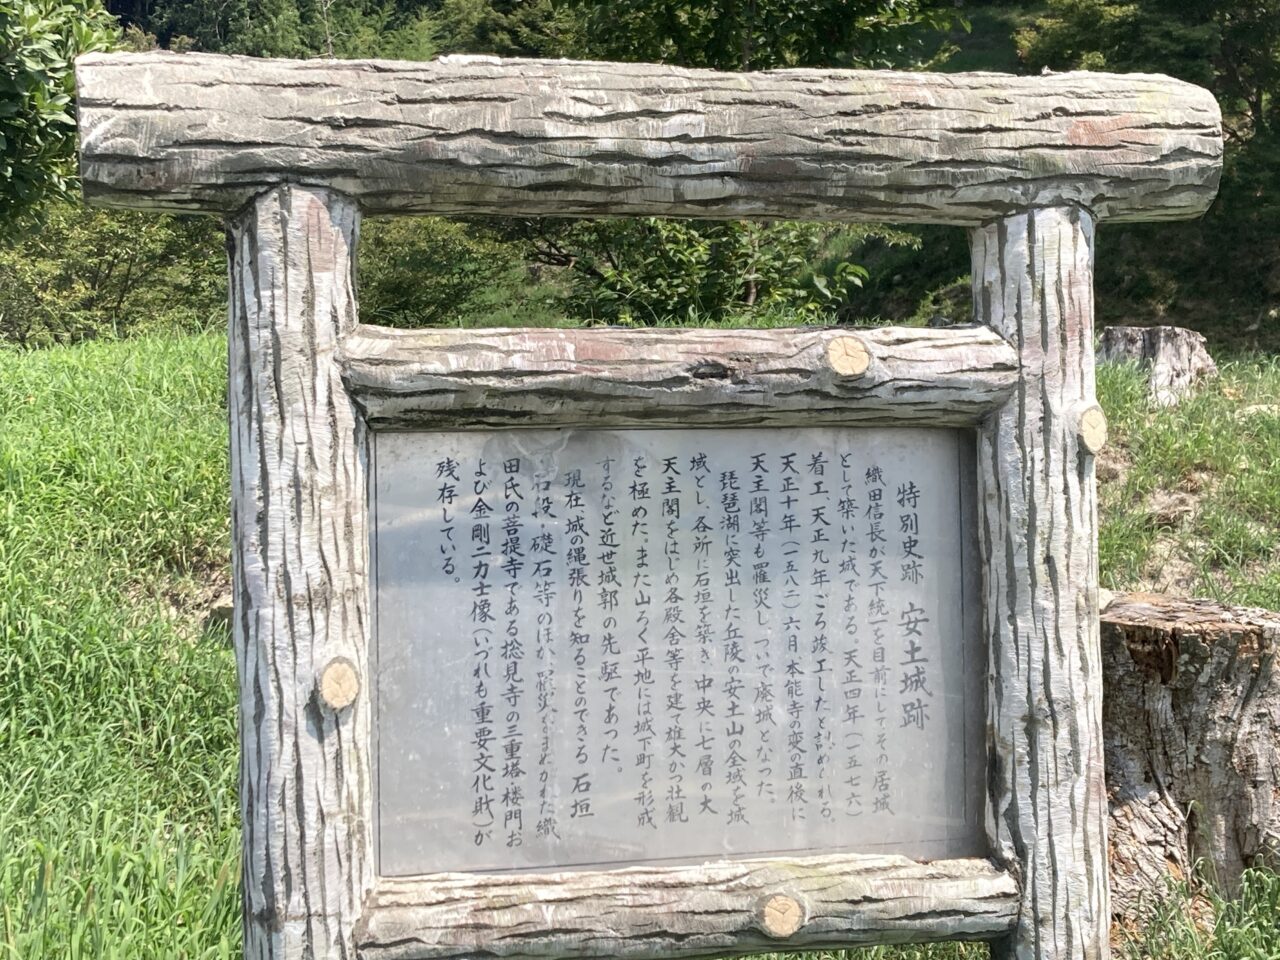 特別史跡 安土城跡
織田信長が天下統一を目前にしてその居城
として築いた城である。天正四年(一五七六)
着工、天正九年ごろ竣工したと認められる。
天正十年(一五八二)六月本能寺の変の直後に
天主閣等も罹災し、ついで廃城となった。
琵琶湖に突出した丘陵の安土山の全域を城
域とし、各所に石垣を築き、中央に七層の大
天主閣をはじめ各殿舎等を建て雄大かつ壮観
を極めた。また山ろく平地には城下町を形成
するなど近世城郭の先駆であった。
現在、城の縄張りを知ることのできる石垣
石段・礎石等のほか、罹災をまぬかれた織
田氏の菩提寺である摠見寺の三重塔、楼門お
よび金剛二力士像(いづれも重要文化財)が
残存している。